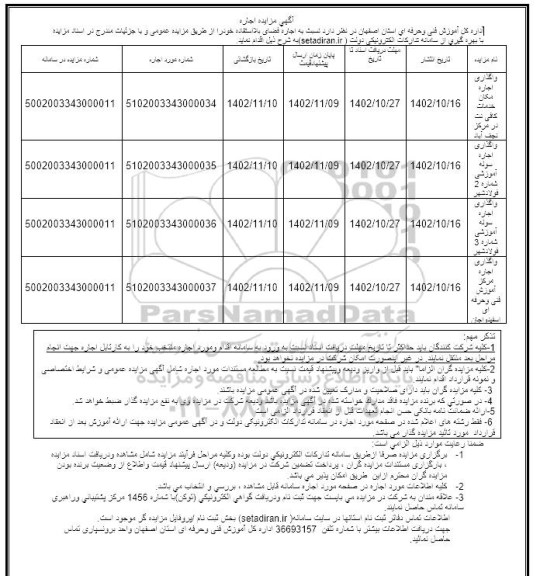 آگهي مزايده اجاره
اداره كل آموزش فني وحرفه اي استان اصفهان در نظر دارد نسبت به اجاره فضای بلااستفاده خودرا از طريق مزايده عمومي و با جزئيات مندرج در اسناد مزايده
با بهره گيري از سامانه تداركات الكترونيكي دولت ( setadiran.ir)به شرح ذيل اقدام نمايد
نام مزايده | تاريخ انتشار | مهلت دريافت اسناد تا تاريخ | پايان زمان ارسال پيشنهادقيمت | تاريخ بازگشائي | شماره مورد اجاره | شماره مزايده در سامانه
واگذاري اجاره مكان خدمات كافي نت در مركز نجف آباد | 1402/10/16 | 1402/10/27 | 1402/11/09 | 1402/11/10 | 5102003343000034 | 5002003343000011
واگذاري اجاره سوله آموزشي شماره 2 فولادشهر | 1402/10/16 | 1402/10/27 | 1402/11/09 | 1402/11/10 | 5102003343000035 | 5002003343000011
واگذاري اجاره سوله آموزشي شماره 3 فولادشهر | 1402/10/16 | 1402/10/27 | 1402/11/09 | 1402/11/10 | 5102003343000036 | 5002003343000011
واگذاري اجاره مركز آموزش فني وحرفه اي | 1402/10/16 | 1402/10/27 | 1402/11/09 | 1402/11/10 | 5102003343000037 | 5002003343000011
ParsNamadData
تذكر مهم:
1-كليه شركت كنندگان بايد حداكثر تا تاريخ مهلت دريافت اسناد نسبت به ورود به سامانه اقدام ومورد اجاره منتخب خود را به كارتابل اجاره جهت انجام
مراحل بعد منتقل نمايند. در غير اينصورت امكان شركت در مزايده نخواهد بود.
2-كليه مزايده گران الزاما" بايد قبل از واريز وديعه وپيشنهاد قيمت نسبت به مطالعه مستندات مورد اجاره شامل آگهي مزايده عمومي و شرايط اختصاصي
و نمونه قرارداد اقدام نمايند
3-كليه مزايده گران بايد داراي صلاحيت و مدارك تعيين شده در آگهي عمومي مزايده باشند.
4- در صورتي كه برنده مزايده فاقد مدارك خواسته شده در آگهي مزايده باشد وديعه شركت در مزايده وي به نفع مزايده گذار ضبط خواهد شد.
5-ارائه ضمانت نامه بانكي حسن انجام تعهدات قبل از انعقاد قرارداد الزامي است.
6-فقط رشته هاي اعلام شده در صفحه مورد اجاره در سامانه تداركات الكترونيكي دولت و در آگهي عمومي مزايده جهت ارائه آموزش بعد از انعقاد
قرارداد مورد تائيد مزايده گذار مي باشد.
ضمنا رعايت موارد ذيل الزامي است:
1- برگزاري مزايده صرفا ازطريق سامانه تداركات الكترونيكي دولت بوده وكليه مراحل فرآيند مزايده شامل مشاهده ودريافت اسناد مزايده
، بارگزاري مستندات مزايده گران ، پرداخت تضمين شركت در مزايده (وديعه) ارسال پيشنهاد قيمت واطلاع از وضعيت برنده بودن
مزايده گران محترم ازاين طريق امكان پذير مي باشد.
2- كليه اطلاعات مورد اجاره در صفحه مورد اجاره سامانه قابل مشاهده ، بررسي و انتخاب مي باشد.
3- علاقه مندان به شركت در مزايده مي بايست جهت ثبت نام ودريافت گواهي الكترونيكي (توكن)با شماره 1456 مركز پشتيباني وراهبري
سامانه تماس حاصل نمايند.
اطلاعات تماس دفاتر ثبت نام استانها در سايت سامانه( setadiran.ir) بخش ثبت نام /پروفايل مزايده گر موجود است.
جهت دريافت اطلاعات بيشتر با شماره تلفن 36693157 اداره كل آموزش فني وحرفه اي استان اصفهان واحد برونسپاري تماس
حاصل نمائيد.